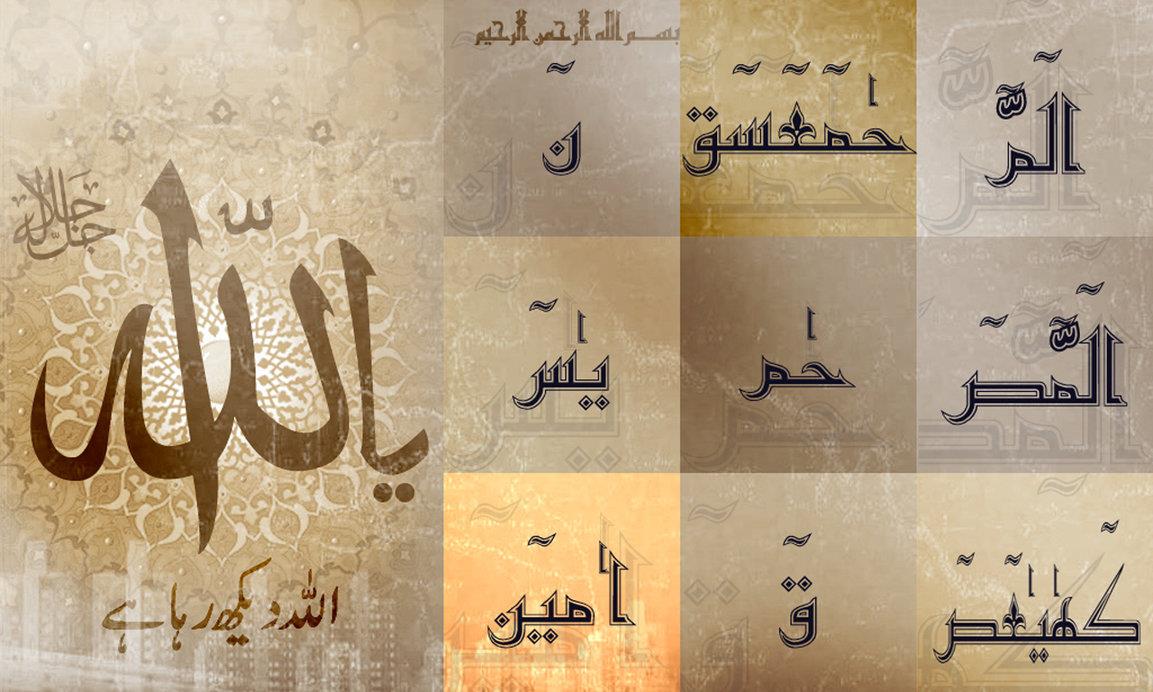 جل جلاله
ياالله
اللہ دیکھ رہا ہے
بسم الله الرحمن الرحيم
الٓمّ
حٰمٓعٓسٓقٓ
نٓ
الٓمّٓصٓ
حٰم
يٰسٓ
كٓهٰيٰعٓصٓ
قٓ
اٰمٓين